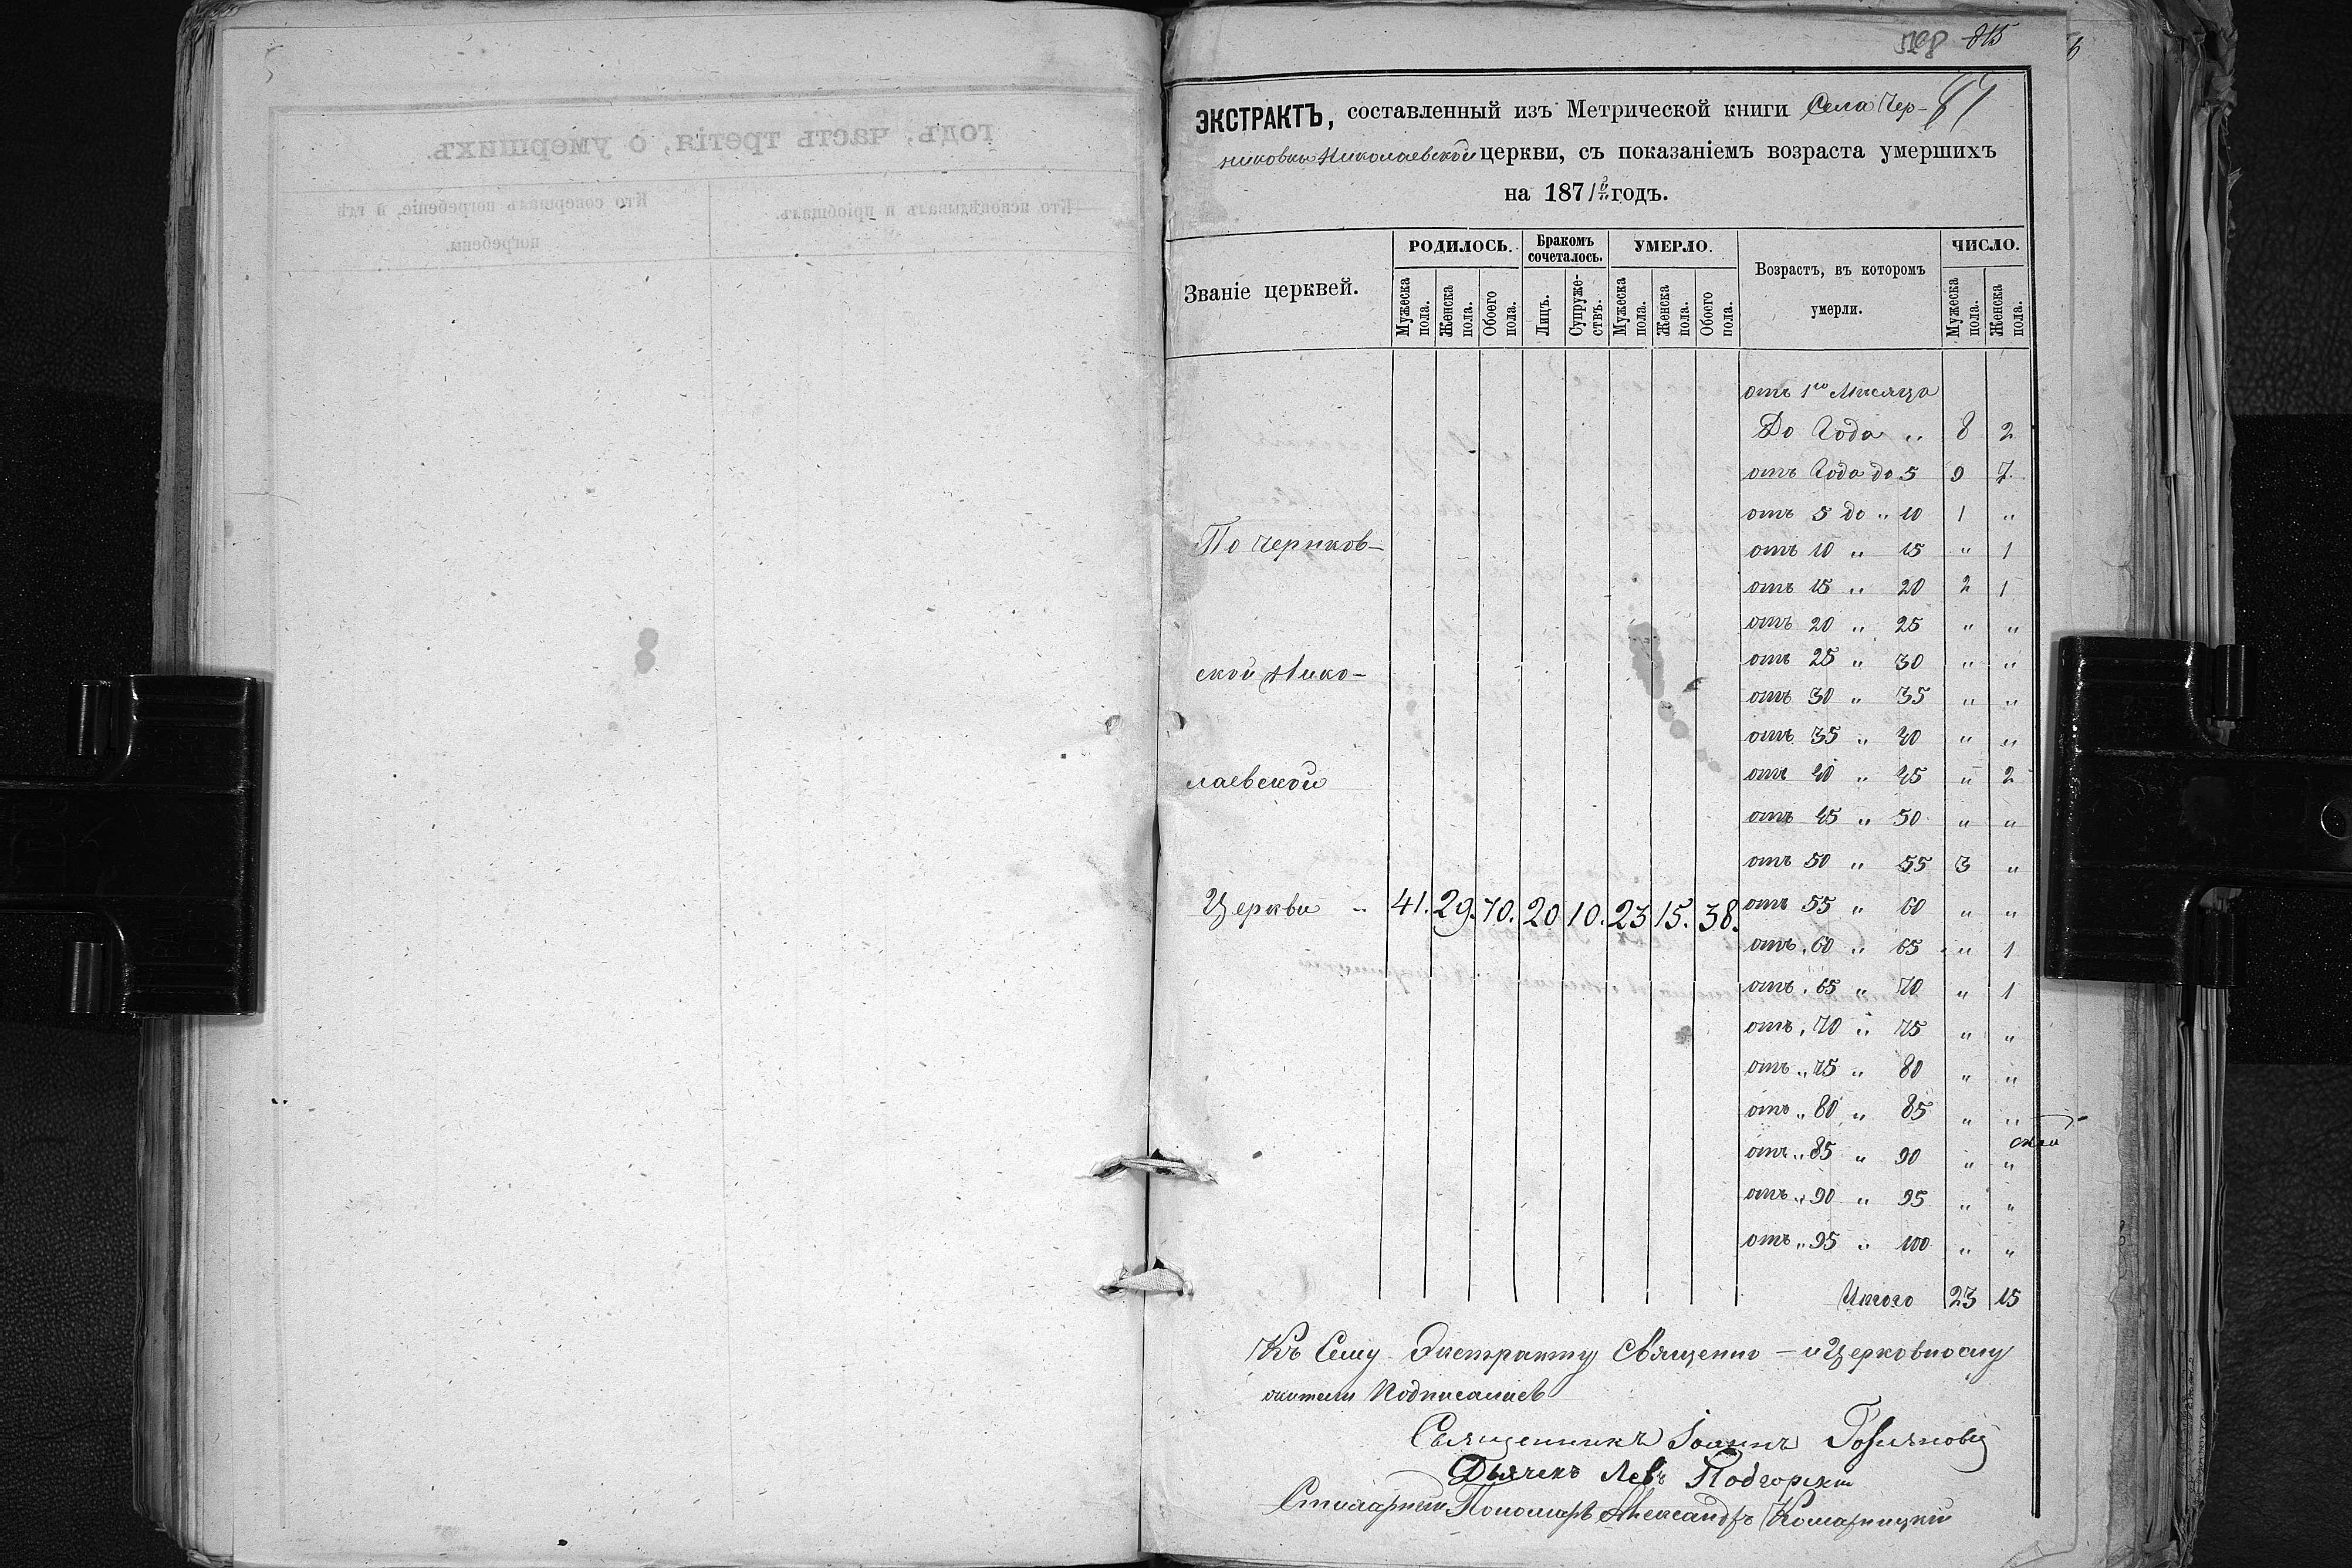 815
ЭКСТРАКТЪ, составленный изъ Метрической книги Села Чер-
никовки Николаевской церкви, съ показаніемъ возраста умершихъ
на 1871й годъ.
Званіе церквей. РОДИЛОСЬ. Бракомъ сочеталось. УМЕРЛО. Возрастъ, въ которомъ умерли. ЧИСЛО.
Мужеска пола. Женска пола. Обоего пола. Лицъ. Супружествъ. Мужеска пола. Женска пола. Обоего пола. Мужеска пола. Женска пола.
отъ 1го Мѣсяца
До Года " 8 2
отъ Года до 5 9 7
отъ 5 до " 10 1 "
По Черников-
отъ 10 " 15 " 1
отъ 15 " 20 2 1
отъ 20 " 25 " "
отъ 25 " 30 " "
ской Нико-
отъ 30 " 35 " "
отъ 35 " 40 " "
отъ 40 " 45 " 2
лаевской
отъ 45 " 50 " "
отъ 50 " 55 3 "
Церкви 41. 29. 70. 20 10. 23 15. 38.
отъ 55 " 60 " "
отъ 60 " 65 " 1
отъ 65 " 70 " 1
отъ 70 " 75 " "
отъ 75 " 80 " "
отъ 80 " 85 " "
отъ 85 " 90 " "
отъ 90 " 95 " "
отъ 95 " 100 " "
Итого 23 15
Къ Сему Экстракту Священно-и Церковнослу
жители Подписались
Священникъ Іоаннъ
Дьячекъ Левъ Подгорскій
Пономарь Александръ Комарницкій
годъ, часть третія, о умершихъ.
Кто исповѣдывалъ и пріобщалъ. Кто совершалъ погребеніе, и гдѣ погребены.